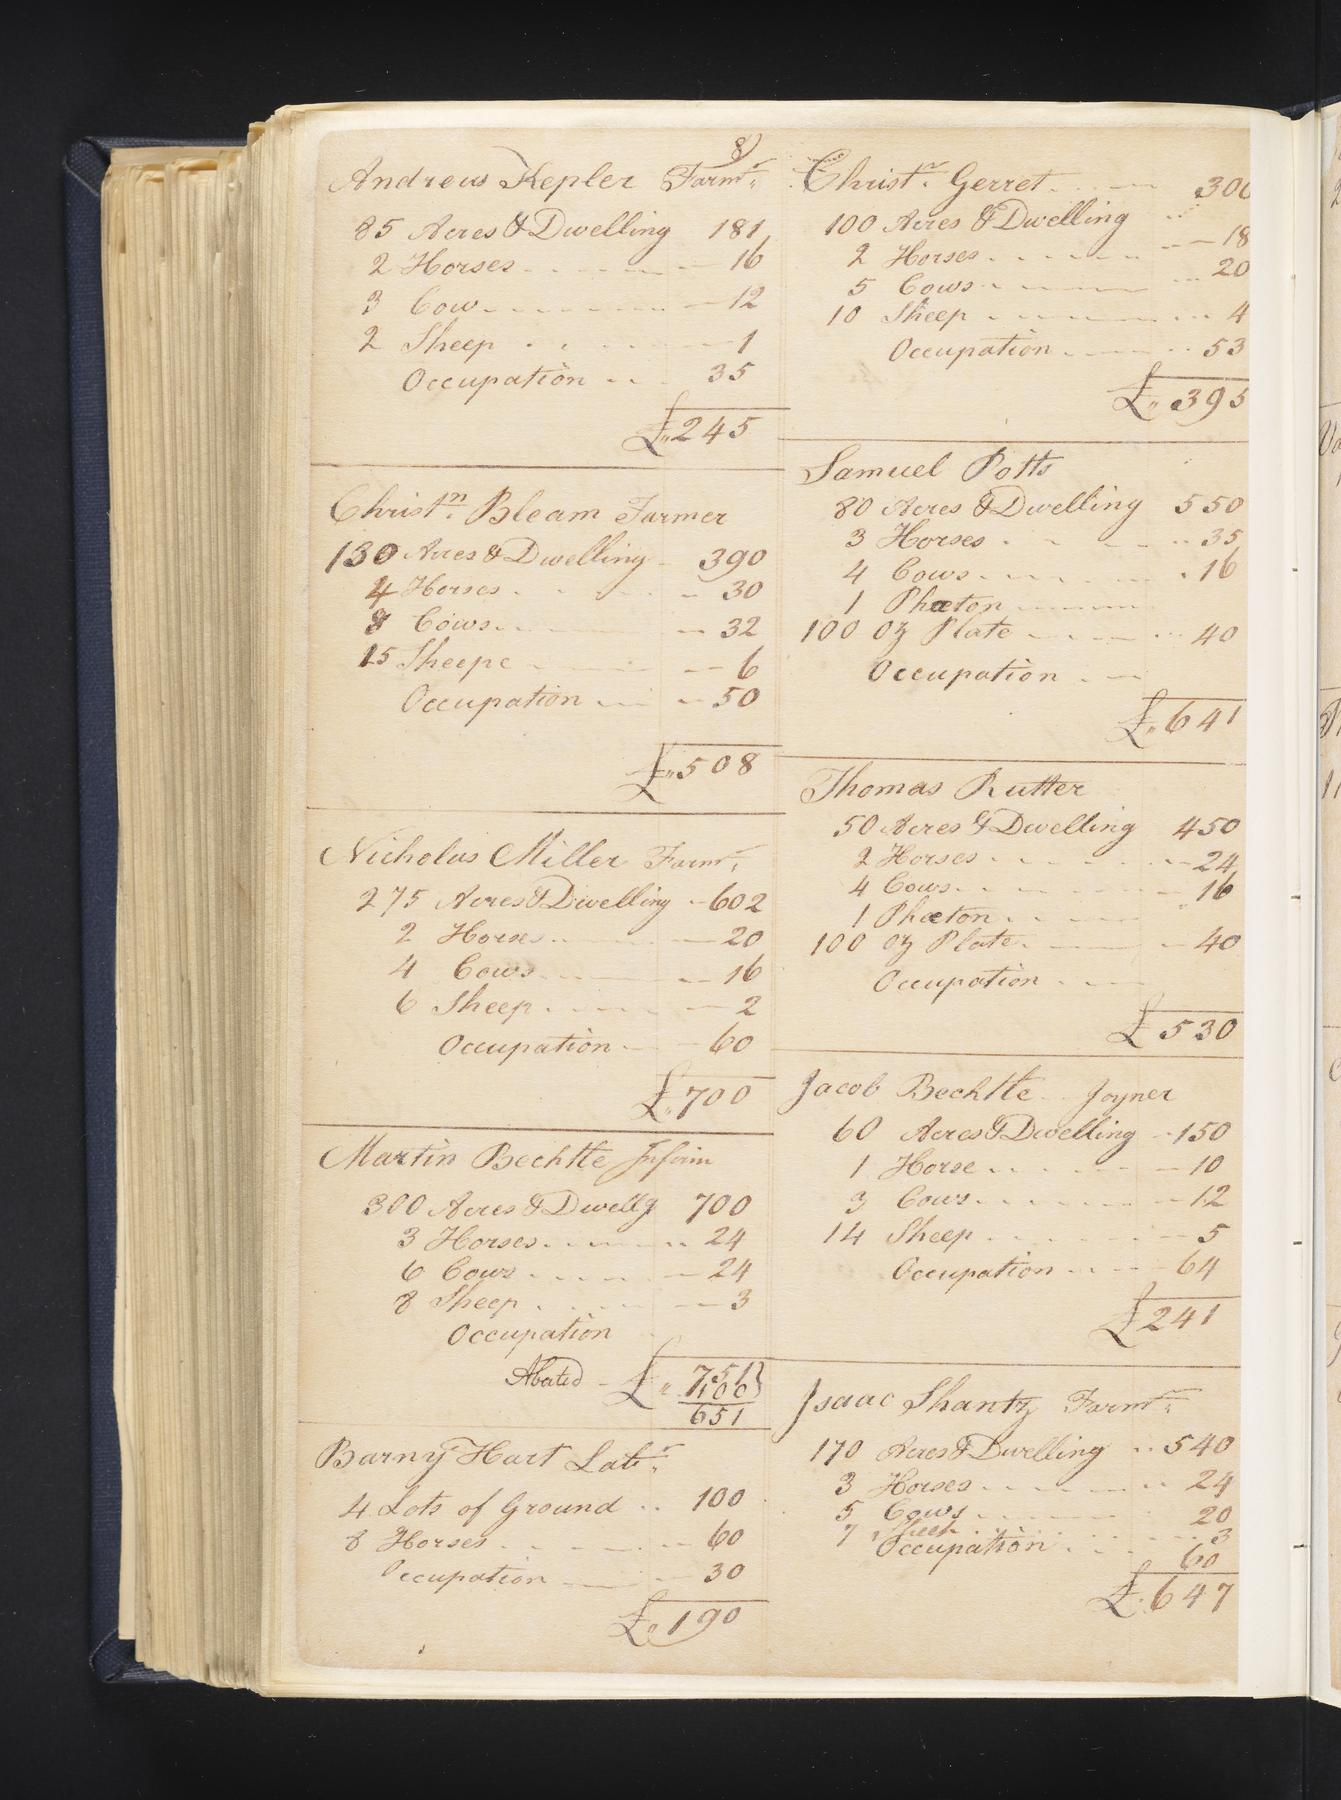 8)
Andrew Kepler Farmr.
85 Acres & Dwelling 181
2 Horses 16
3 Cow 12
2 Sheep 1
Occupation 35
£ 245
Christn. Bleam Farmer
130 Acres & Dwelling 390
4 Horses 30
8 Cows 32
15 Sheepe 6
Occupation 50
£ 508
Nicholas Miller Farmr.
275 Acres & Dwelling 602
2 Horses 20
4 Cows 16
6 Sheep 2
Occupation 60
£ 700
Martin Bechtle Infirm
300 Acres & Dwellg 700
3 Horses 24
6 Cows 24
8 Sheep 3
Occupation
£ 751
Abated 100
651
Barny Hart Labr.
4 Lots of Ground 100
8 Horses 60
Occupation 30
£ 190
Christn. Gerret 300
100 Acres & Dwelling
2 Horses 18
5 Cows 20
10 Sheep 4
Occupation 53
£ 395
Samuel Potts
80 Acres & Dwelling 550
3 Horses 35
4 Cows 16
1 Phæton
100 oz Plate 40
Occupation
£ 641
Thomas Rutter
50 Acres & Dwelling 450
2 Horses 24
4 Cows 16
1 Phæton
100 oz Plate 40
Occupation
£ 530
Jacob Bechtle Joyner
60 Acres & Dwelling 150
1 Horse 10
3 Cows 12
14 Sheep 5
Occupation 64
£ 241
Isaac Shantz Farmr.
170 Acres & Dwelling 540
3 Horses 24
5 Cows 20
7 Sheep 3
Occupation 60
£ 647